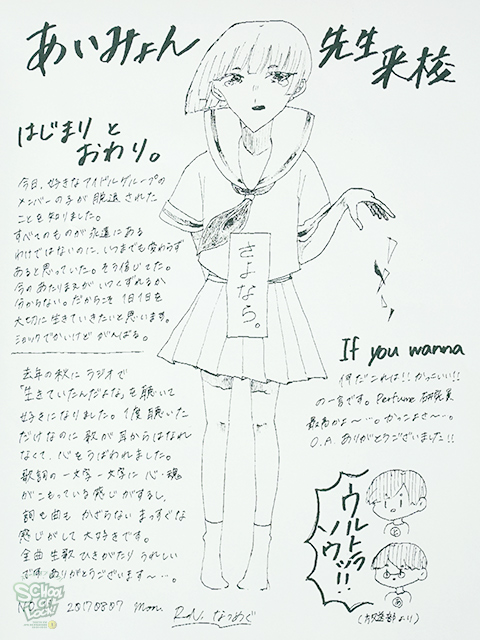 あいみょん 先生 来校
はじまり と
おわり。
今日、好きなアイドルグループの
メンバーの子が脱退された
ことを知りました。
すべてのものが永遠にある
わけではないのに、いつまでも変わらず
あると思っていた。そう信じてた。
今のあたりまえがいつくずれるか
分からない。だからこそ1日1日を
大切に生きていきたいと思います。
ショックでかいけど がんばる。
去年の秋にラジオで
「生きていたんだよな」を聴いて
好きになりました。1度聴いた
だけなのに歌が耳からはなれ
なくて、心をうばわれました。
歌詞の一文字一文字に心・魂
がこもっている感じがするし、
詞も曲も かざらない まっすぐな
感じがして 大好きです。
全曲生歌ひきがたり うれしい
です ありがとうございます〜…。
さよなら。
If you wanna
何だこれは!! かっこいい!!
の一言です。Perfume 研究員
最高かよ〜…。かっこよさ〜。
O.A. ありがとうございました!!
ウルトラ
ソウッ!!
(放送部より)
SCHOOL
OF
LOCK!
NO.
20170807 Mon.
R.N. なつめぐ